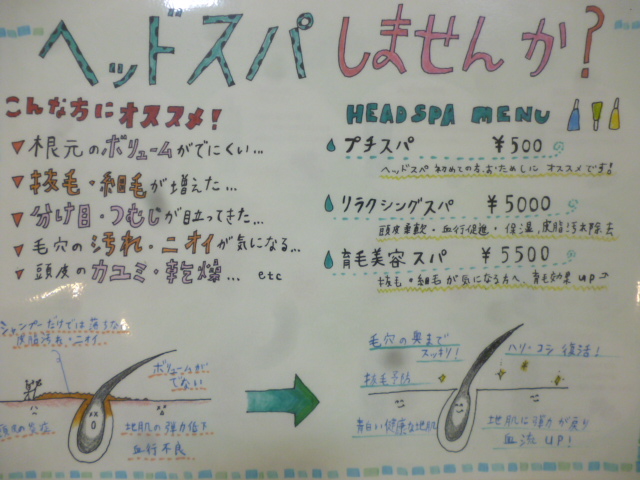 ヘッドスパしませんか?
こんな方にオススメ!
▼根元のボリュームがでにくい…
▼抜毛・細毛が増えた…
▼分け目・つむじが目立ってきた…
▼毛穴の汚れ・ニオイが気になる…
▼頭皮のカユミ・乾燥… etc
HEADSPA MENU
プチスパ ¥500
ヘッドスパ初めての方おためしにオススメです!
リラクシングスパ ¥5000
頭皮柔軟・血行促進・保湿・皮脂汚れ除去
育毛美容スパ ¥5500
抜毛・細毛が気になる方へ 育毛効果up
シャンプーだけでは落ちない
皮脂汚れ・ニオイ
ボリュームが
でない
地肌の弾力低下
血行不良
毛穴の奥まで
スッキリ!
ハリ・コシ 復活!
抜毛予防
青白い健康な地肌
地肌に弾力が戻り
血流UP!